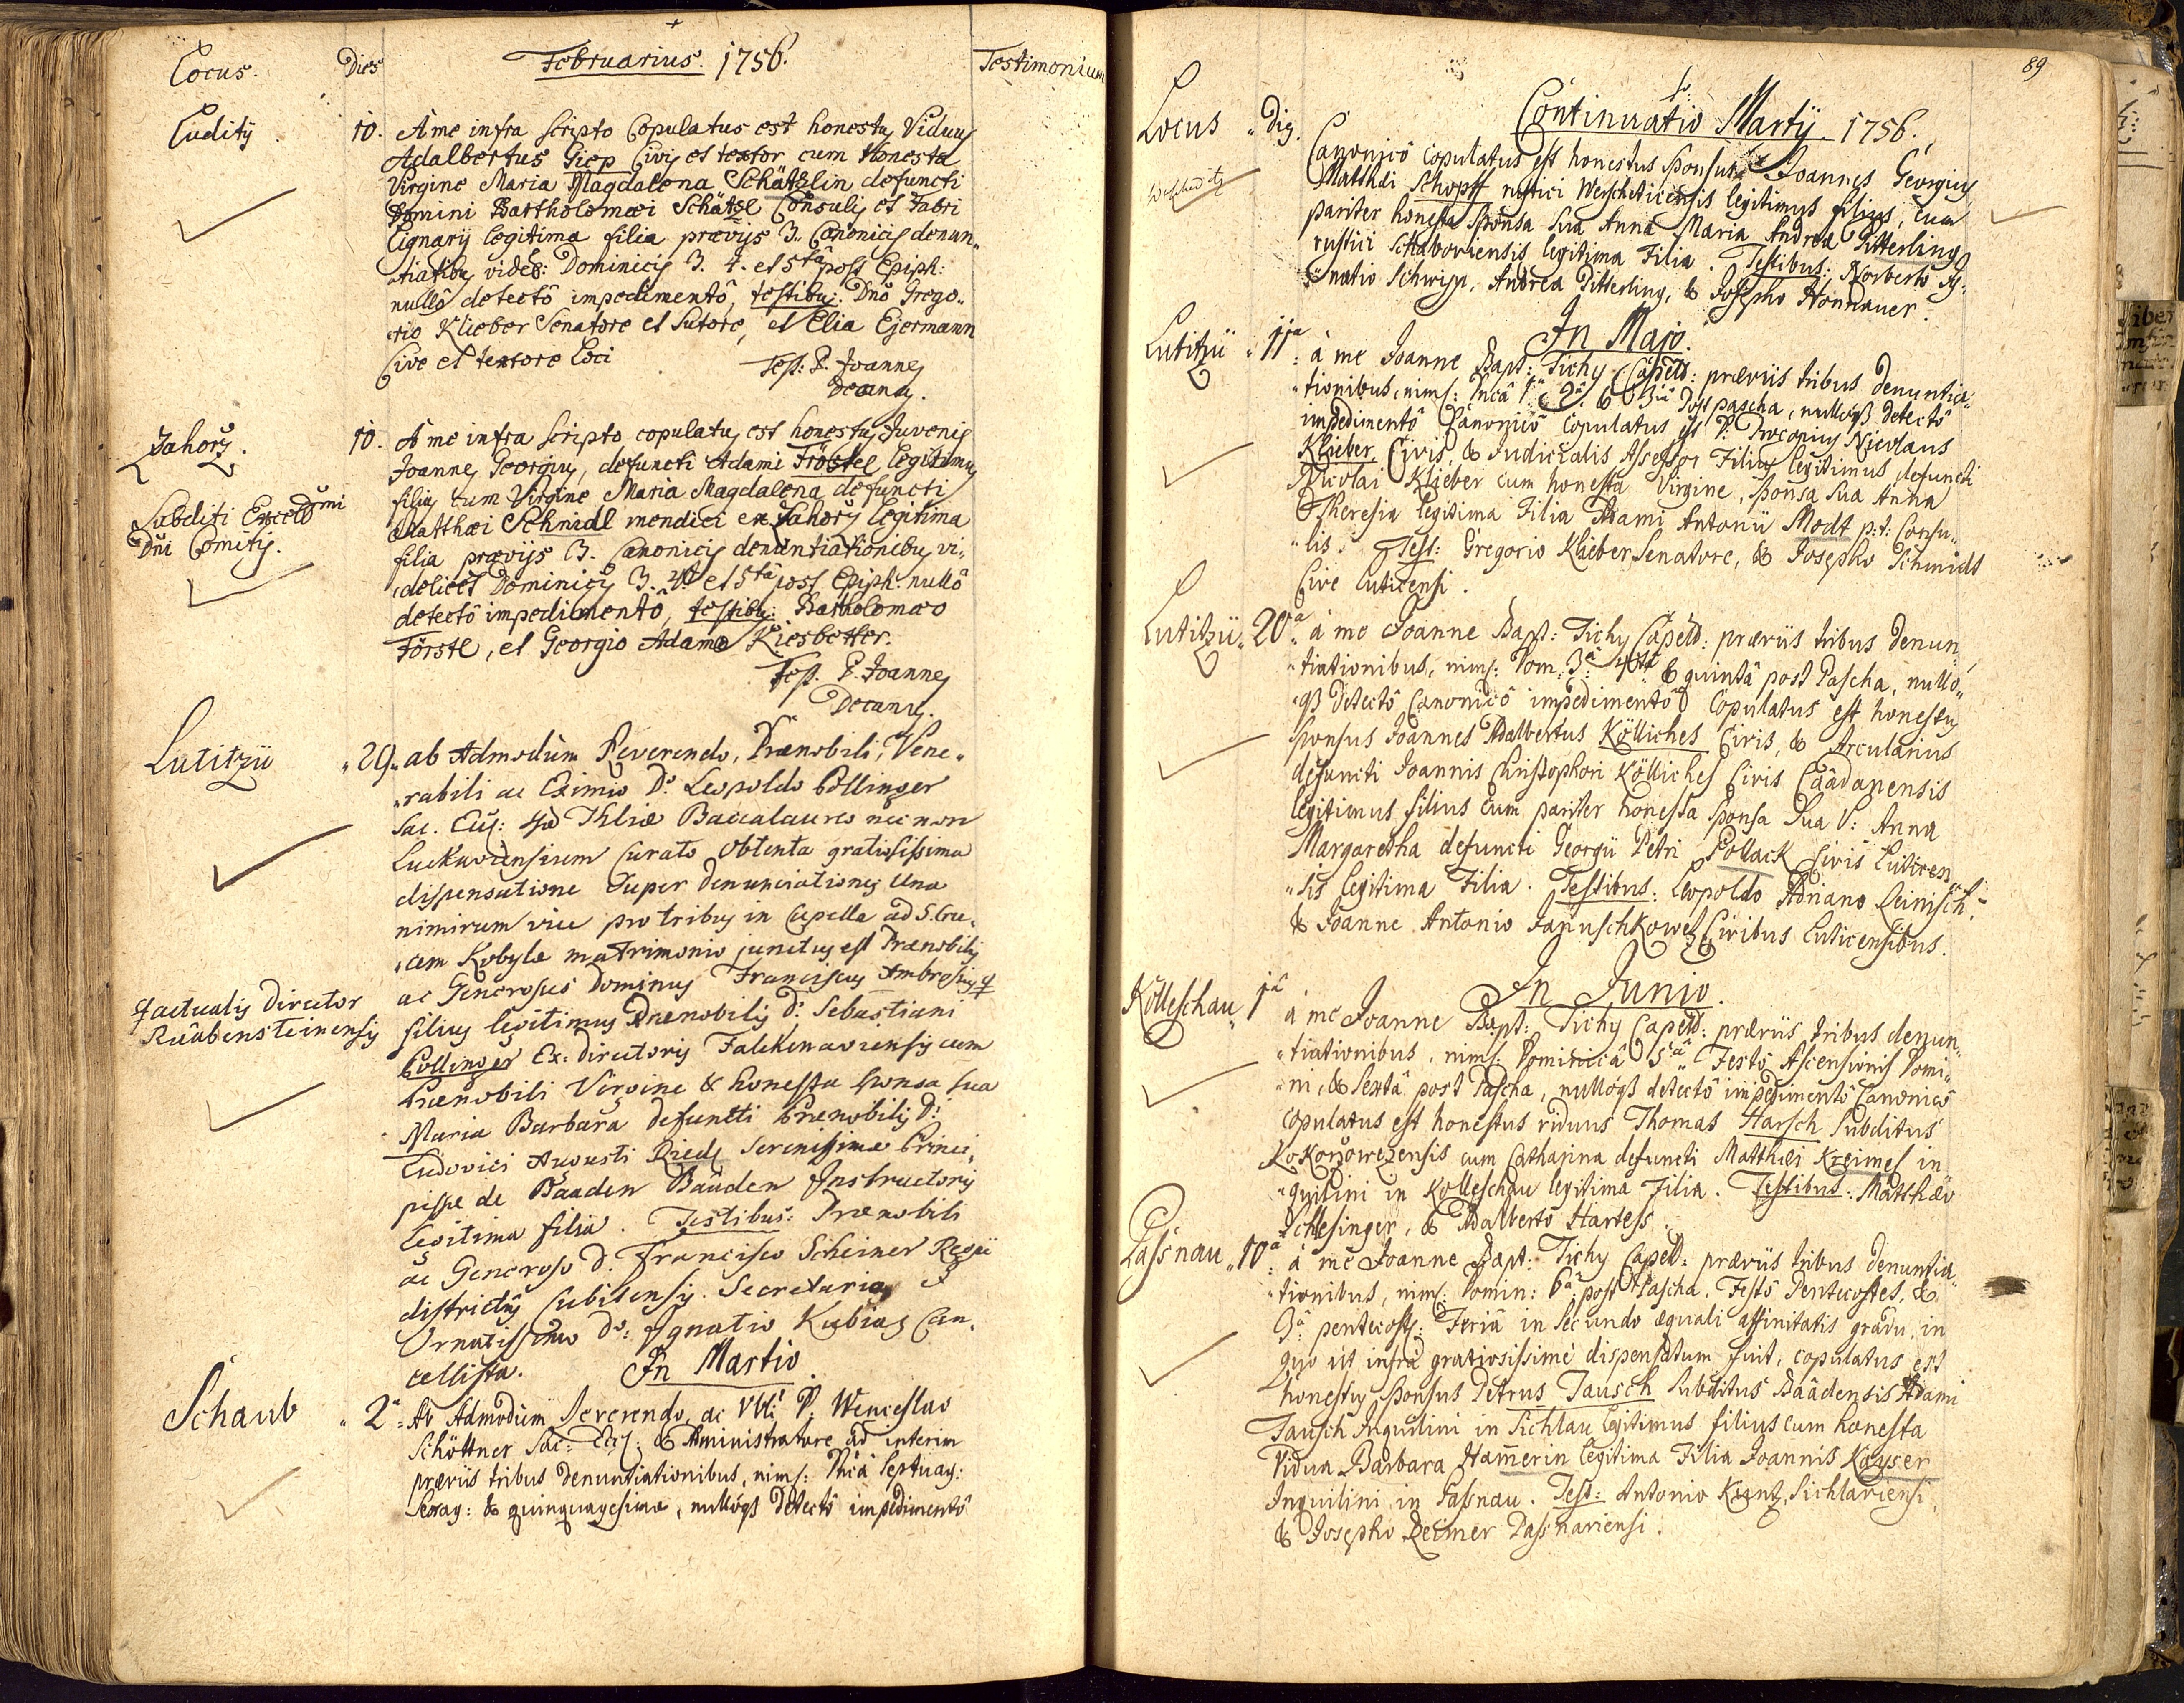 Locus. Dies Februarius. 1756. Testimonium
Luditÿ 10. A me infra scripto Copulatus est honestus Viduus
Adalbertus Giep Civis et textor cum Honesta
Virgine Maria Magdalena Schätzlin defuncti
Domini Bartholomæi Schätzl Consulis et Fabri
Lignarÿ legitima filia prævÿs 3. Canonicis denun„
„tiatibus videl: Dominicis 3. 4. et 5ta post Epiph:
nullô detectô impedimentô, testibus: Dnô Grego„
„rio Klieber Senatore et Sutore, et Elia Ejermann
Cive et textore Loci
Tes: P. Joannes
Decanus.
Zahorz. 10. A me infra scripto copulatus est honestus Juvenis
Joannes Georgius, defuncti Adami Förstel legitimus
filius cum Virgine Maria Magdalena defuncti
Subditi Excell Domi
Matthæi Schmidl mendici ex Zahorz legitima
Dni Comitis.
filia prævÿs 3. Canonicis denuntiationibus vi„
„delicet Dominicis 3. 4ta et 5ta post Epiph: nullô
detectô impedimentô, testibus: Bartholomæo
Förstl, et Georgio Adamo Kiesbetter.
Tes. P. Joannes
Decanus.
Lutitzii „29„ ab Admodum Reverendo, Prænobili, Vene„
„rabili ac Eximio D: Leopoldo Pollinger
Sac. Euz: Thliæ Baccalaureo nec non
Luckaviensium Curato Obtenta gratiosissima
dispensatione Super denunciationes Una
nimirum vice pro tribus in Capella ad S. Cru„
„cem Kobyla matrimonio junctus est Prænobilis
ac Generosus Dominus Franciscus Ambrosius
actualis Director
filius legitimus Prænobilis D: Sebastiani
Raabensteinensis
Pollinger Ex: directoris Falckenaviensis cum
Prænobili Virgine & honesta Sponsa Sua
Maria Barbara defuncti Prænobilis D:
Ludovici Augusti Riedl Serenissimæ Princi„
pissæ de Baaden Baaden Instructoris
legitima filia. Testibus: Prænobili
ac Generoso D. Francisco Scheiner Regii
districtus Cubitensis Secretario, &
Ornatissimo D: Ignatio Kubias Can„
cellista.
In Martio.
Schaub „2a Ab Admodum Reverendo, ac Vbli P: Wenceslao
Schöttner Sac: Euz: & Administratore ad interim
præviis tribus denuntiationibus, nims: Dnicâ Septuag:
Sexag: & quinquagesimæ, nullóqs detectô impedimentô
89
Locus „ dies. Continuatio Martÿ 1756.
Canonicô Copulatus est honestus Sponsus Joannes Georgius
Weschditz
Matthæi Schopff rustici Wescheticensis legitimus filius, cum
pariter honesta Sponsa Sua Anna Maria Andreæ Pitterling
rustici Schaboviensis legitima Filia. Testibus: Norberto Ig„
„natio Schwipp, Andrea Pitterling, & Josepho Honnauer.
In Majo.
Lutitzii „11a à me Joanne Bapt: Tichy Capell: præviis tribus denuntia„
„tionibus, nims: Dnicâ 1a 2a & 3a Post pascha, nullóqs detectô
impedimentô Canonicô Copulatus est D: Procopius Nicolaus
Klieber, Civis, & Judicialis Assessor Filius legitimus defuncti
Nicolai Klieber cum honesta Virgine, Sponsa Sua Anna
Theresia legitima Filia Adami Antonii Modt p:t: Consu„
„lis. Test: Gregorio Klieber Senatore, & Josepho Schmidt
Cive Luticensi.
Lutitzii „20a à me Joanne Bapt: Tichy Capell: præviis tribus denun„
„tiationibus, nims: Dom: 3a 4ta & quintâ post Pascha, nullo„
„qs detectô Canonicô impedimentô Copulatus est honestus
Sponsus Joannes Adalbertus Kölliches Civis, & Arcularius
defuncti Joannis Christophori Kölliches Civis Caadanensis
legitimus filius cum pariter honesta Sponsa Sua V: Anna
Margaretha defuncti Georgii Petri Pollack Civis Luticen„
„sis legitima Filia. Testibus: Leopoldo Floriano Reinisch,
& Joanne Antonio Januschkowetz Civibus Luticensibus.
In Junio.
Kölleschau „1a à me Joanne Bapt: Tichy Capell: præviis tribus denun„
„tiationibus, nims: Dominicâ 5a Festô Ascensionis Domi„
„ni, & Sextâ post Pascha, nullóqs detectô impedimentô Canonicô
copulatus est honestus viduus Thomas Harsch Subditus
Kokorzowezensis cum Catharina defuncti Matthæi Kreimes in„
„quilini in Kölleschau legitima Filia. Testibus: Matthæo
Schlesinger, & Adalberto Hartess.
Passnau „10a à me Joanne Bapt: Tichy Capell: præviis tribus denuntia„
„tionibus, nims: Domin: 6a post Pascha, Festô Pentecostes, &
3a pentecosts: Feriâ in Secundo æquali affinitatis gradu, in
quo ut infra gratiosissimè dispensatum fuit, copulatus est
honestus Sponsus Petrus Tausch Subditus Baadensis Adami
Tausch Inquilini in Sichlau legitimus filius cum honesta
Vidua Barbara Hamerin legitima Filia Joannis Kayser
Inquilini in Passnau. Test: Antonio Kuntz Sichlaviensi,
& Josepho Reimer Passnaviensi.